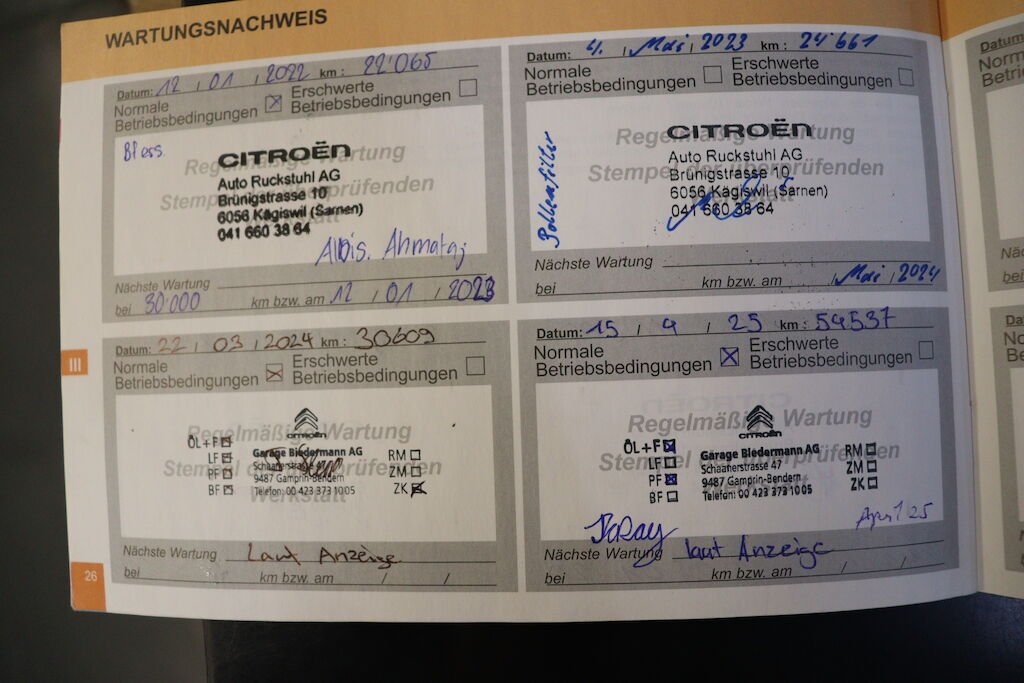 WARTUNGSNACHWEIS
Datum: 12 / 01 / 2022 km: 22'065
Normale Betriebsbedingungen ☒ Erschwerte Betriebsbedingungen ☐
Regelmäßige Wartung
CITROËN
Auto Ruckstuhl AG
Brünigstrasse 10
6056 Kägiswil (Sarnen)
041 660 38 64
Nächste Wartung
bei 30'000 km bzw. am 12 / 01 / 2023
Datum: 4. / Mai / 2023 km: 24'661
Normale Betriebsbedingungen ☐ Erschwerte Betriebsbedingungen ☐
Pollenfilter
Regelmäßige Wartung
Stempel der überprüfenden
CITROËN
Auto Ruckstuhl AG
Brünigstrasse 10
6056 Kägiswil (Sarnen)
041 660 38 64
Nächste Wartung
bei km bzw. am / Mai / 2024
III
Datum: 22 / 03 / 2024 km: 30609
Normale Betriebsbedingungen ☒ Erschwerte Betriebsbedingungen ☐
Regelmäßige Wartung
Stempel der überprüfenden
Werkstatt
CITROËN
ÖL+F
LF
PF
BF
Garage Biedermann AG
Schaanerstrasse 47
9487 Gamprin-Bendern
Telefon: 00 423 373 10 05
RM
ZM
ZK
Nächste Wartung Laut Anzeige
bei km bzw. am / /
Datum: 15 / 9 / 25 km: 54537
Normale Betriebsbedingungen ☒ Erschwerte Betriebsbedingungen ☐
Regelmäßige Wartung
CITROËN
ÖL+F
LF
PF
BF
Garage Biedermann AG
Schaanerstrasse 47
9487 Gamprin-Bendern
Telefon: 00 423 373 10 05
RM
ZM
ZK
Nächste Wartung laut Anzeige
bei km bzw. am / /
26